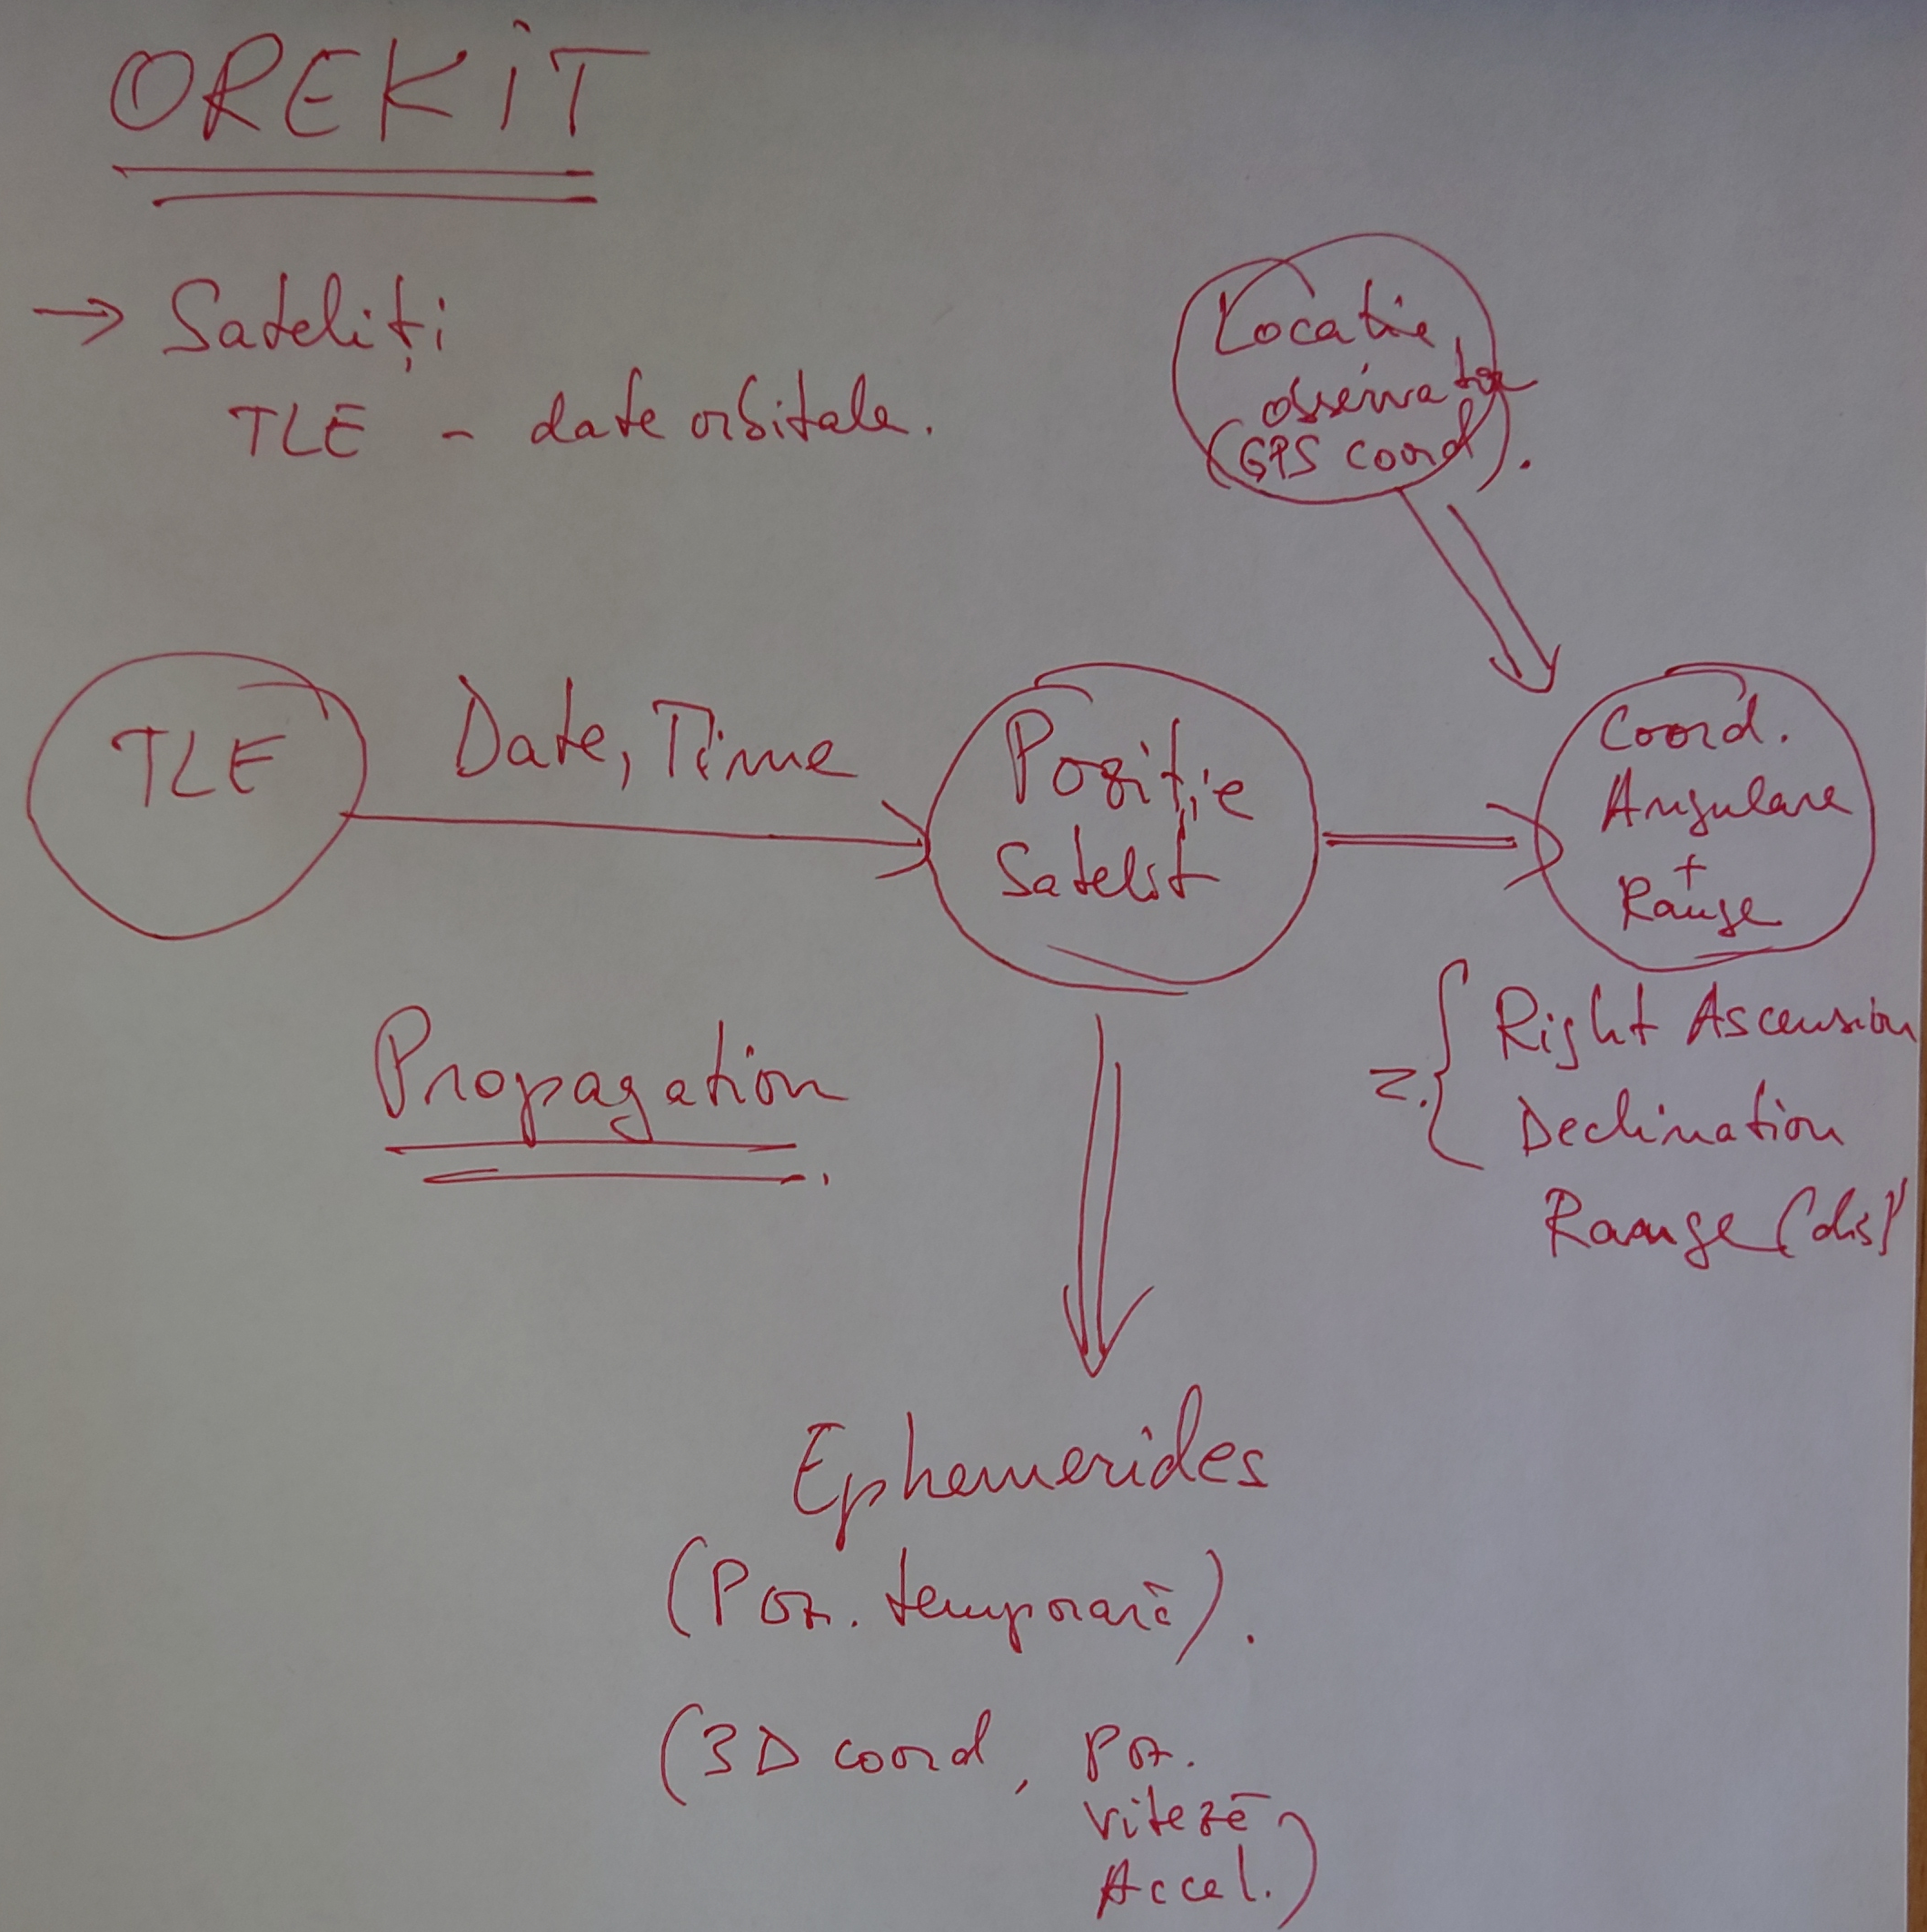 OREKIT
→ Sateliți
TLE - date orbitale.
Locatie
observator
(GPS coord).
TLE
Date, Time
Poziție
Satelit
Coord.
Angulare
+
Range
Propagation
Right Ascension
Declination
Range (dist)
Ephemerides
(Poz. temporară).
(3D coord, poz.
viteză
Accel.)